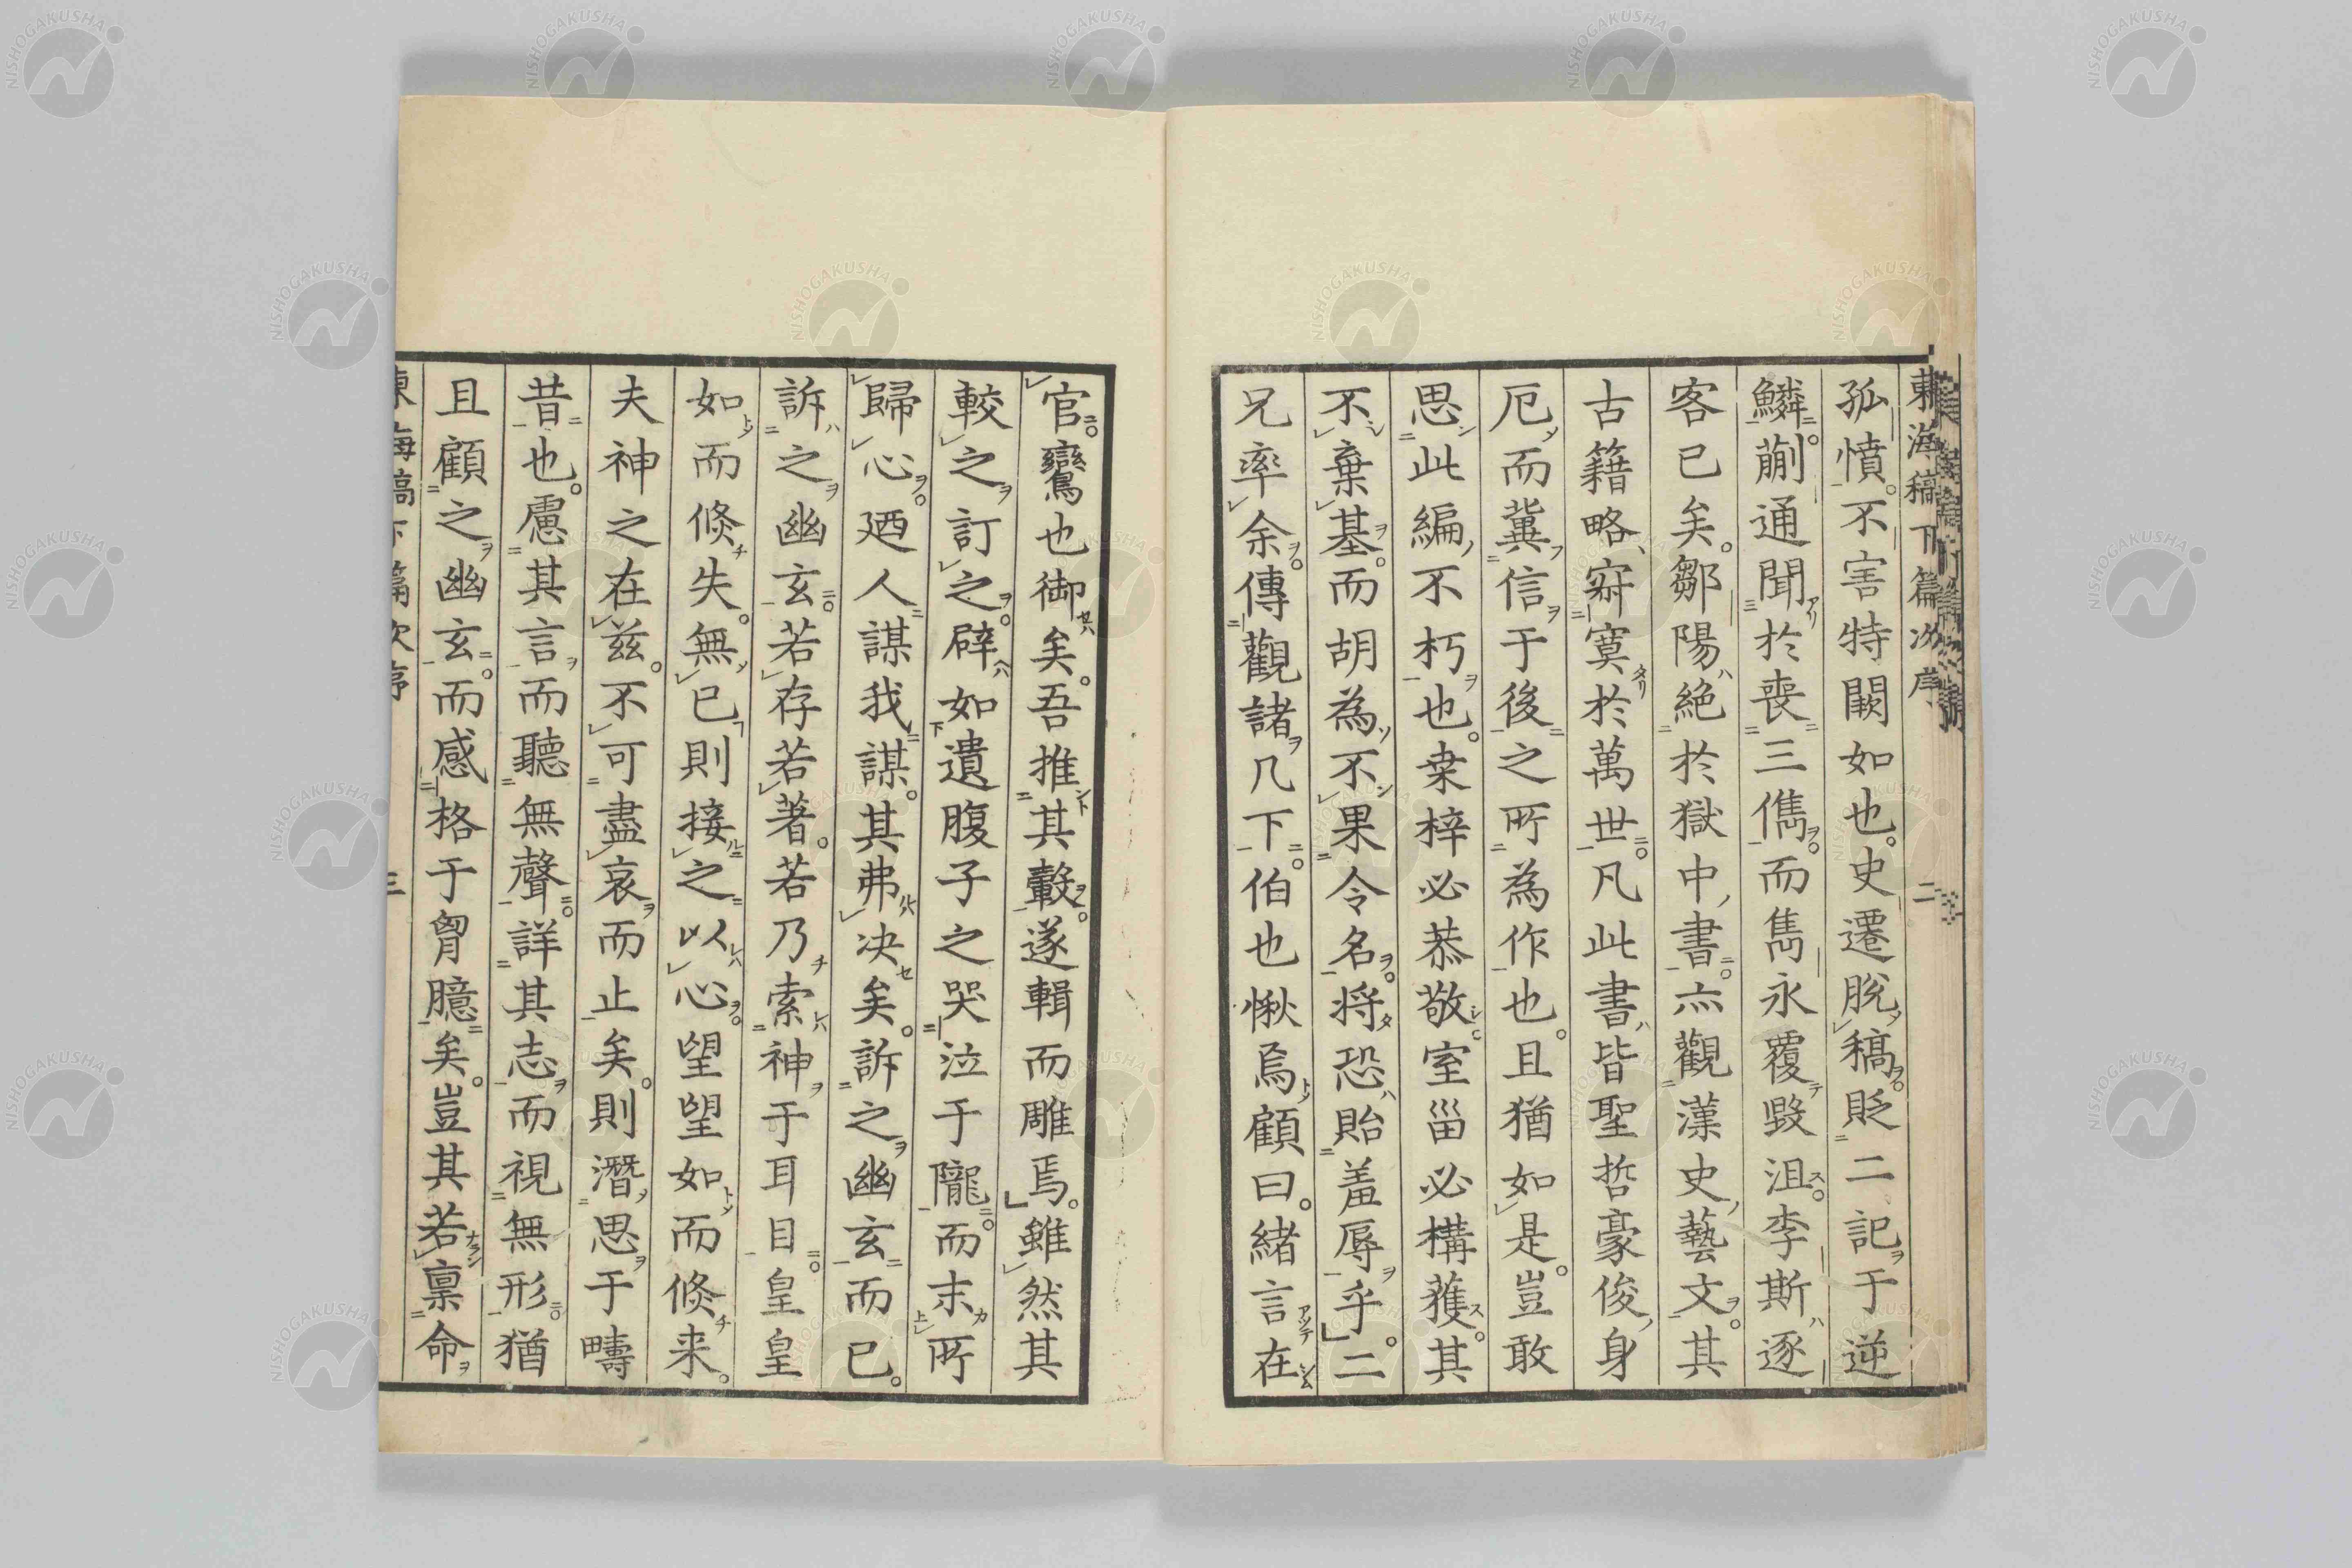 東海稿下篇次序 二
孤憤不害特闕如也史遷脫稿貶二記于逆
鱗蒯通聞於喪三儁而雋永覆毀沮李斯逐
客已矣鄒陽絶於獄中書亦觀漢史藝文其
古籍略寂寞於萬世凡此書皆聖哲豪俊身
厄而冀信于後之所為作也且猶如是豈敢
思此編不朽也桒梓必恭敬室甾必構蒦其
不棄基而胡為不果令名将恐貽羞辱乎二
兄率余傳觀諸几下伯也愀焉顧曰緒言在
官鸞也御矣吾推其轂遂輯而雕焉雖然其
較之訂之辟如遺腹子之哭泣于隴而末所
歸心廼人謀我謀其弗决矣訴之幽玄而已
訴之幽玄若存若著若乃索神于耳目皇皇
如而倐失無已則接之以心望望如而倐来
夫神之在兹不可盡哀而止矣則潛思于疇
昔也慮其言而聽無聲詳其志而視無形猶
且顧之幽玄而感格于胷臆矣豈其若禀命
東海稿下篇次序 三
NISHOGAKUSHA